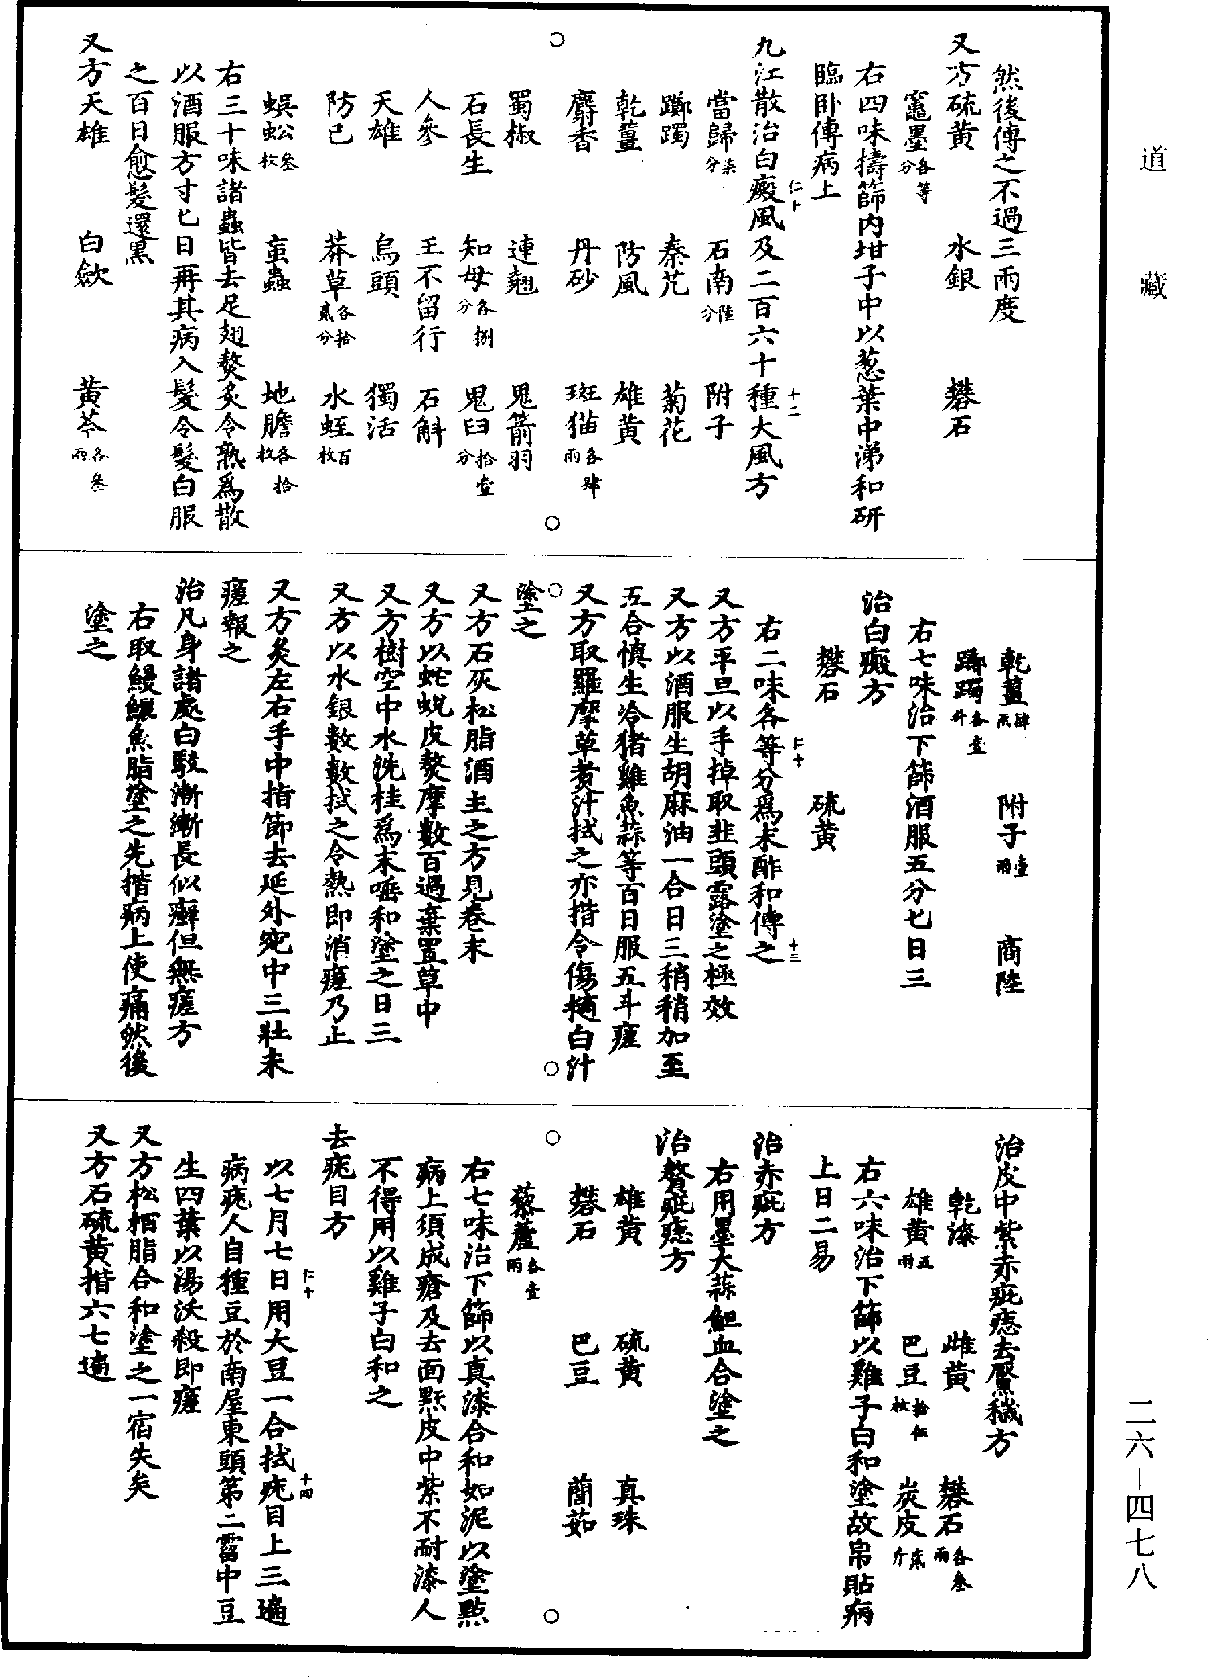 道藏
二六—四七八
然後傅之不過三兩度
又方硫黄　水銀　礬石
竈墨各等分
右四味擣篩内坩子中以葱葉中涕和研
臨卧傅病上
九江散治白癜風及二百六十種大風方
仁卜　十二
當歸柒分　石南陸分　附子
躑躅　秦艽　菊花
乾薑　防風　雄黄
麝香　丹砂　斑猫各肆兩
蜀椒　連翹　鬼箭羽
石長生　知母各捌分　鬼臼拾壹分
人參　王不留行　石斛
天雄　烏頭　獨活
防已　莽草各拾貳分　水蛭百枚
蜈蚣叁枚　䖟蟲　地膽各拾枚
右三十味諸蟲皆去足翅熬炙令熟爲散
以酒服方寸匕日再其病入髮令髮白服
之百日愈髮還黑
又方天雄　白歛　黄芩各叁兩
乾薑肆兩　附子壹兩　商陸
躑躅各壹升
右七味治下篩酒服五分匕日三
治白癜方
礬石　硫黄
右二味各等分爲末酢和傅之
仁十　十三
又方平旦以手掉取韭頭露塗之極效
又方以酒服生胡麻油一合日三稍稍加至
五合慎生冷猪雞魚蒜等百日服五斗瘥
又方取羅摩草煑汁拭之亦揩令傷擿白汁
塗之
又方石灰松脂酒主之方見卷末
又方以蛇蜕皮熬摩數百過棄置草中
又方樹空中水洗桂爲末唾和塗之日三
又方以水銀數數拭之令熱即消瘥乃止
又方灸左右手中指節去延外宛中三壯未
瘥報之
治凡身諸處白駮漸漸長似癬但無瘡方
右取鰻鱺魚脂塗之先揩病上使痛然後
塗之
治皮中紫赤疵痣去黶穢方
乾漆　雌黄　礬石各叁兩
雄黄五兩　巴豆拾伍枚　炭皮壹斤
右六味治下篩以雞子白和塗故帛貼病
上日二易
治赤疵方
右用墨大蒜䱇血合塗之
治贅疵痣方
雄黄　硫黄　真珠
礬石　巴豆　䕡茹
藜蘆各壹兩
右七味治下篩以真漆合和如泥以塗點
病上須成瘡及去面黑皮中紫不耐漆人
不得用以雞子白和之
去疣目方
以七月七日用大豆一合拭疣目上三過
仁十　十四
病疣人自種豆於南屋東頭第二霤中豆
生四葉以湯沃殺即瘥
又方松栢脂合和塗之一宿失矣
又方石硫黄揩六七遍